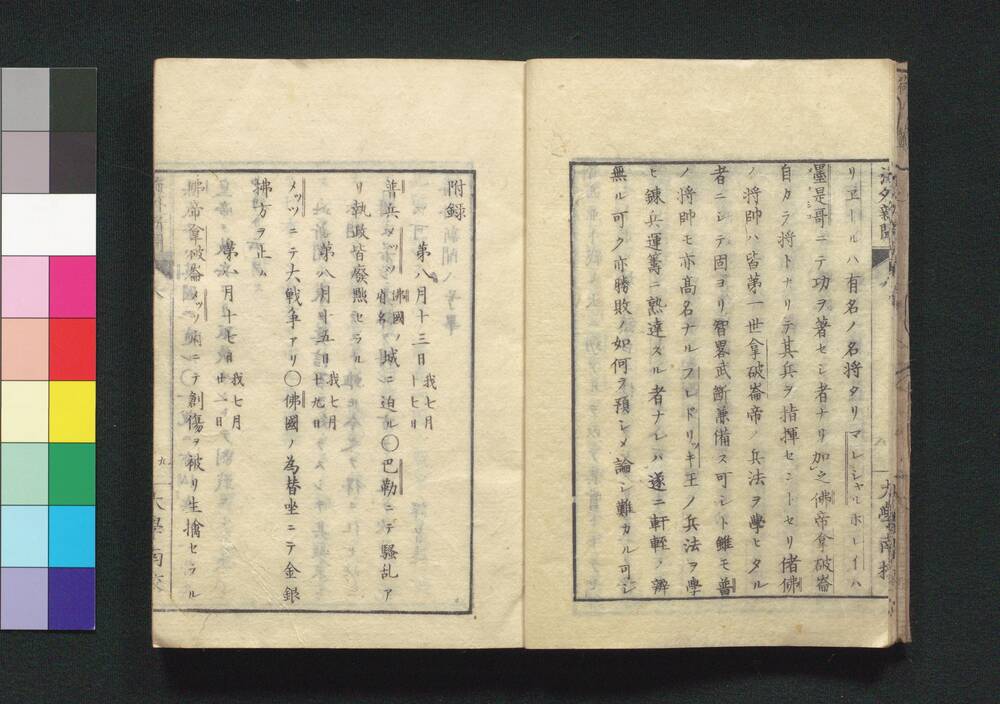 リヱールハ有名ノ名將タリマレシャルホレイハ
墨是哥ニテ功ヲ著セシ者ナリ加之佛帝拿破崙
自カラ將トナリテ其兵ヲ指揮セントセリ偖佛
ノ將帥ハ皆第一世拿破崙帝ノ兵法ヲ學ヒタル
者ニシテ固ヨリ智畧武断兼備ス可シト雖モ普
ノ將帥モ亦高名ナルフレドリッキ王ノ兵法ヲ學
ヒ錬兵運籌ニ熟達スル者ナレハ遂ニ軒輊ノ辨
無ル可ク亦勝敗ノ如何ヲ預シメ論シ難カル可シ
附録
第八月十三日 我七月十七日
普兵メッツ 佛國ノ城ニ迫ル〇巴勒ニテ騒乱ア
リ執政皆廢黜セラル
第八月十五日 我七月十九日
メッツニテ大戦争アリ〇佛國ノ為替坐ニテ金銀
拂方ヲ止ム
第八月十七日 我七月廿一日
佛帝拿破崙メッツノ病ニテ創傷ヲ被リ生擒セラル
九
大學南校